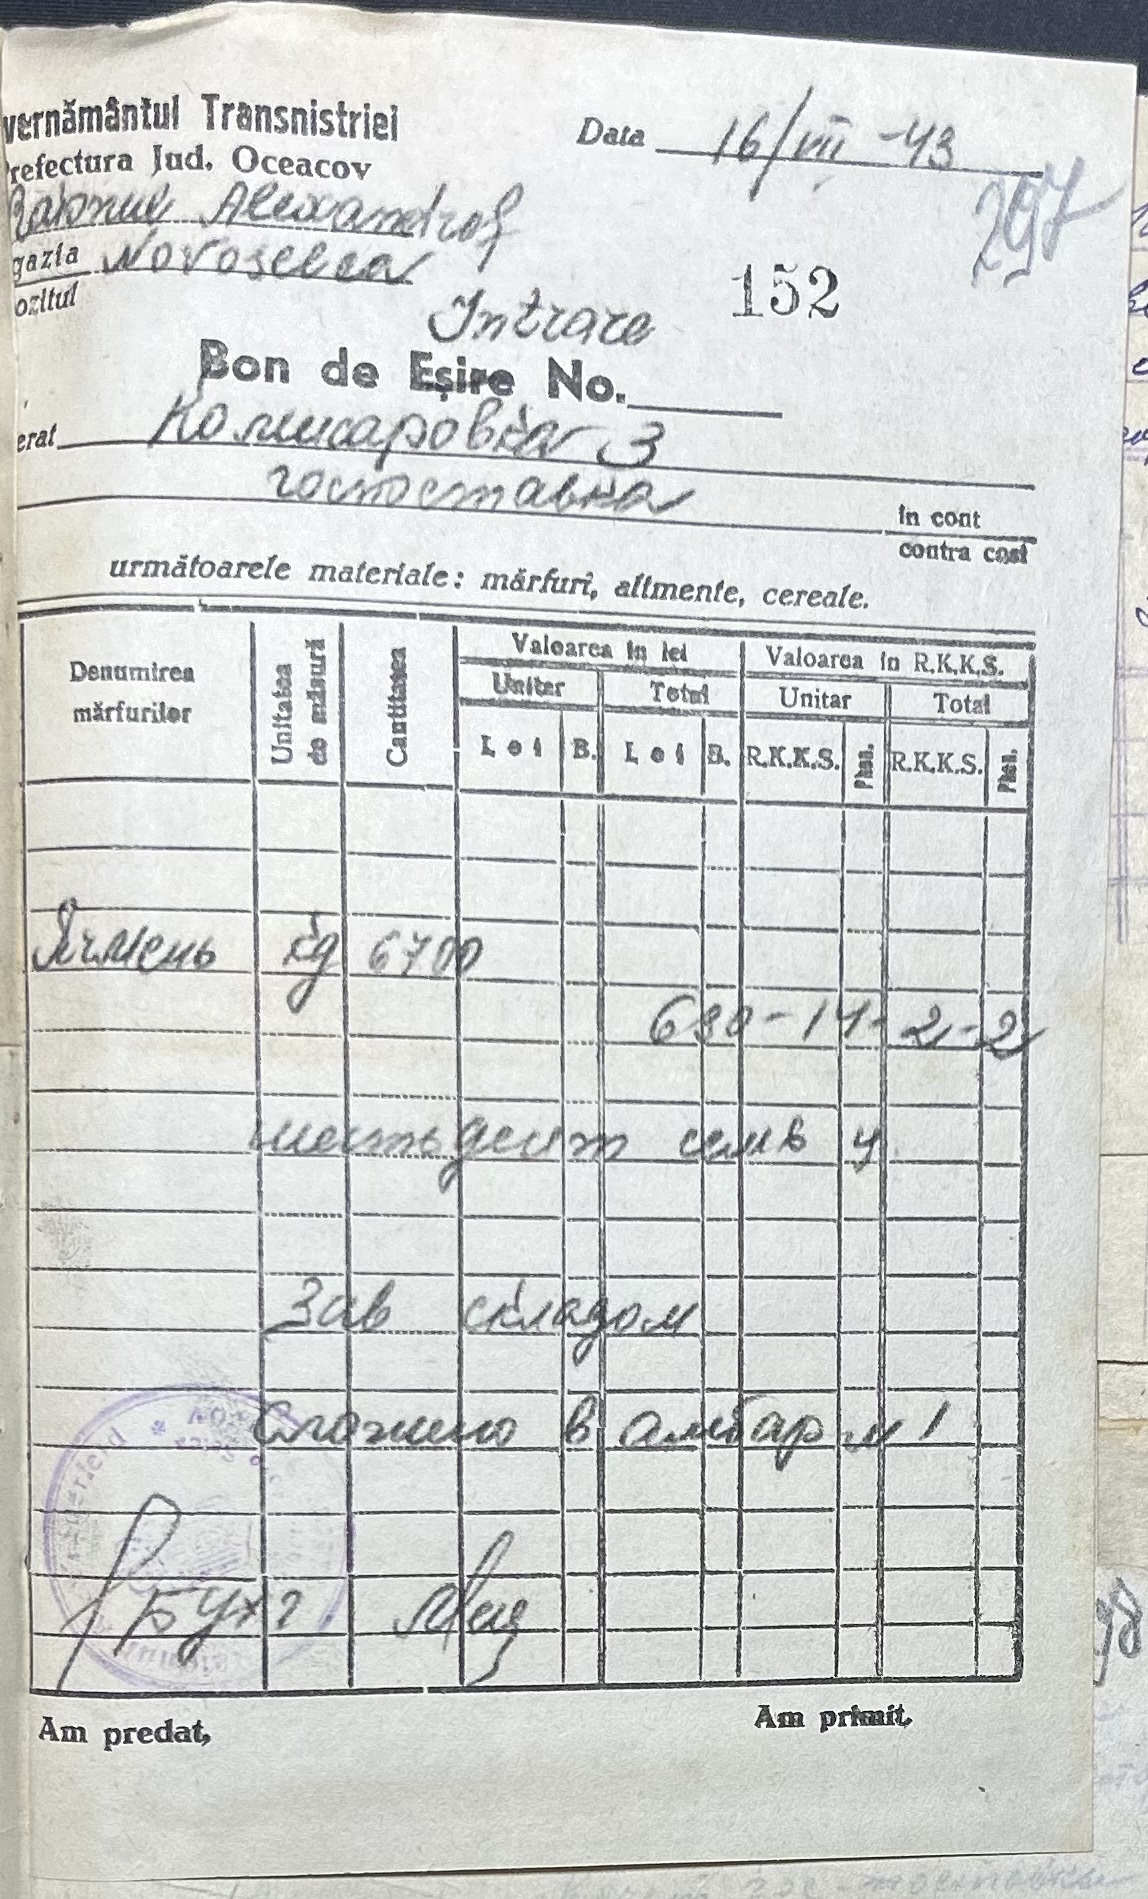 vernământul Transnistriei
Data 16/VII -43
refectura Jud. Oceacov
Raionul Alexandrof
297
gazia Novoselca
ozitul
152
Intrare
Bon de Eșire No.
erat Комисаровка 3
госпоставка
în cont
contra cost
următoarele materiale: mărfuri, alimente, cereale.
Denumirea mărfurilor
Unitatea de măsură
Cantitatea
Valoarea în lei
Valoarea în R.K.K.S.
Unitar Total Unitar Total
Lei B. Lei B. R.K.K.S. Phen. R.K.K.S. Phen.
Ячмень kg 6700
630-14-2-2
шестьдесят семь ц
Зав складом
Сложено в амбар № 1
Бухг
Am predat,
Am primit,